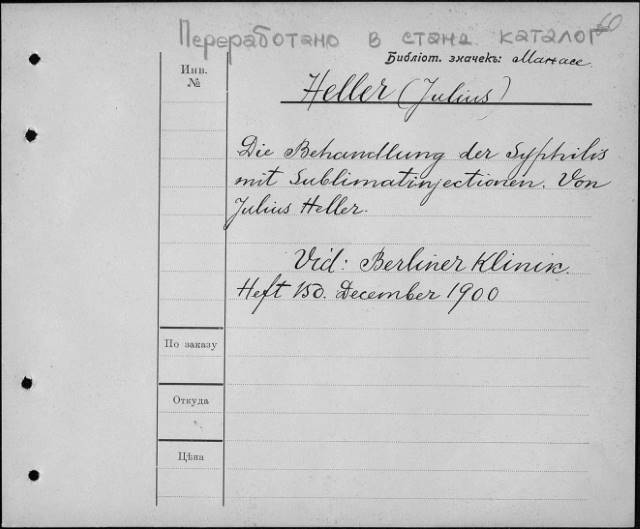 Переработано в станд. каталог
60
Библіот. значекъ: Манасе
Инв.
№
Heller (Julius)
Die Behandlung der Syphilis
mit Sublimatinjectionen. Von
Julius Heller.
Vid: Berliner Klinik.
Heft 150. December 1900
По заказу
Откуда
Цѣна